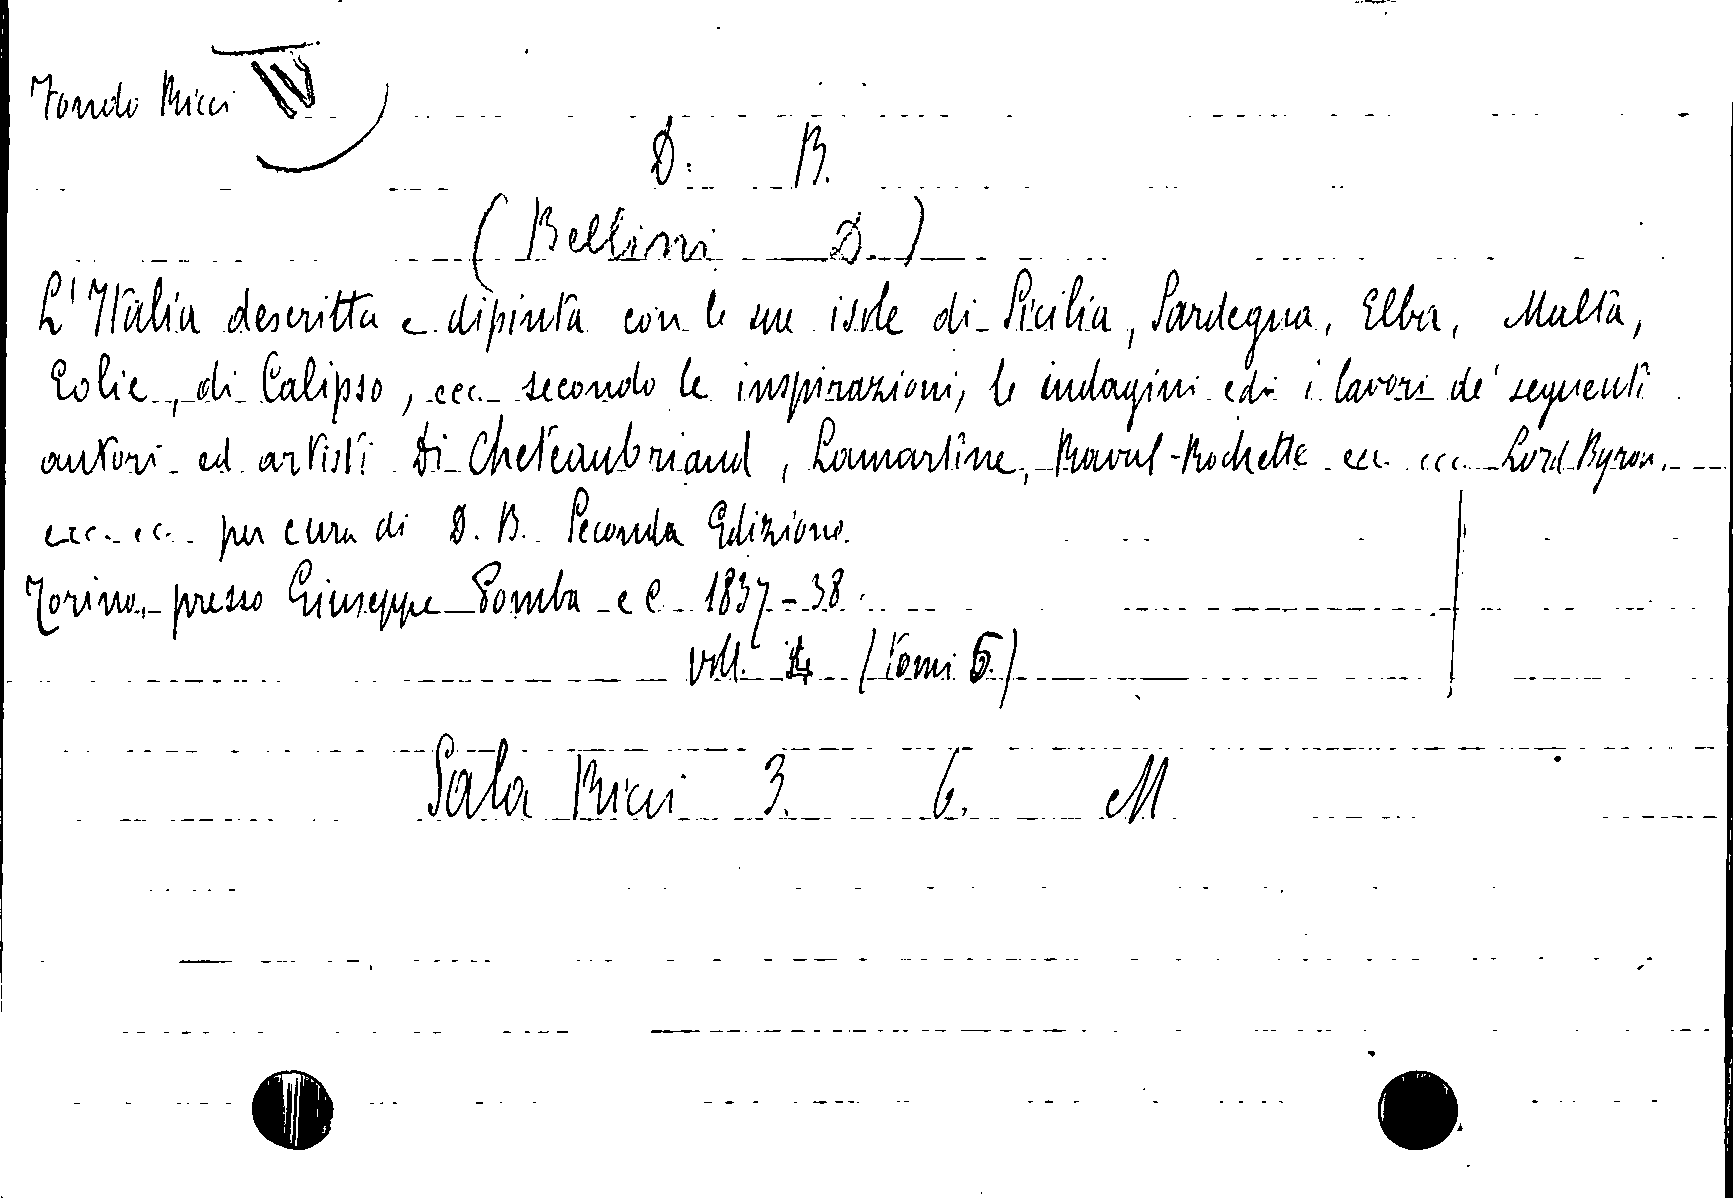 Fondo Ricci IV
D. B.
(Bellini D.)
L'Italia descritta e dipinta con le sue isole di Sicilia, Sardegna, Elba, Malta,
Eolie, di Calipso, ecc. secondo le inspirazioni, le indagini ed i lavori de' seguenti
autori ed artisti Di Cheteaubriand, Lamartine, Raoul-Rochette ecc. ecc. Lord Byron,
ecc. ec. per cura di D. B. Seconda Edizione.
Torino, presso Giuseppe Pomba e C. 1837-38.
voll. 4 (tomi 5.)
Sala Ricci 3. 6. M